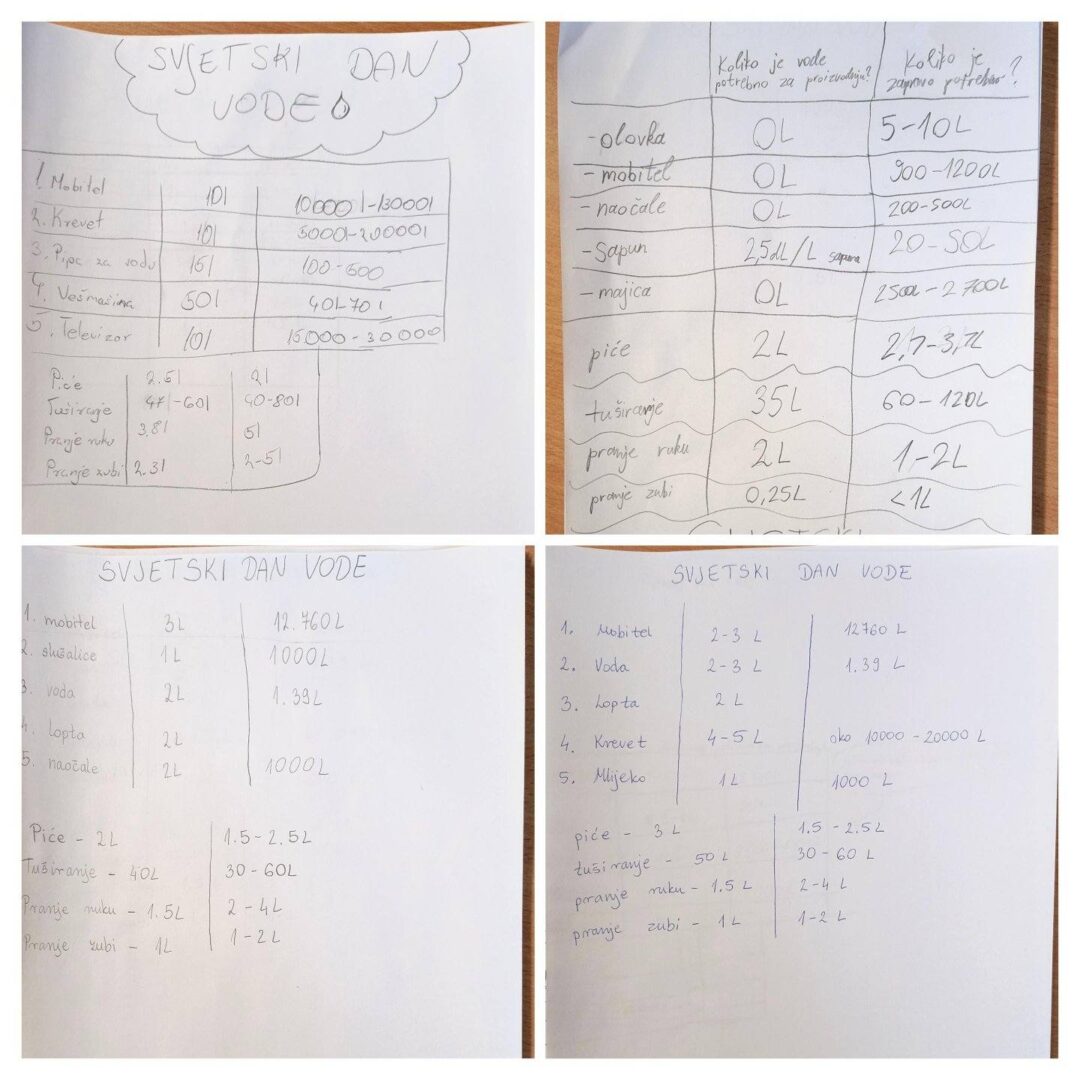 SVJETSKI DAN
VODE
1. Mobitel 10l 10000l-13000l
2. Krevet 10l 5000l-20000l
3. Pipa za vodu 15l 100-600
4. Vešmašina 50l 40l-70l
5. Televizor 10l 15000-30000
Piće 2.5l 2l
Tuširanje 47l-60l 40-80l
Pranje ruku 3,8l 5l
Pranje zubi 2.3l 2-5l
Koliko je vode potrebno za proizvodnju? Koliko je zapravo potrebno?
-olovka 0L 5-10L
-mobitel 0L 900-1200L
-naočale 0L 200-500L
-Sapun 2,5dL/L sapuna 20-50L
-majica 0L 2500L-2700L
piće 2L 2,7-3,7L
tuširanje 35L 60-120L
pranje ruku 2L 1-2L
pranje zubi 0,25L <1L
SVJETSKI DAN VODE
1. mobitel 3L 12.760L
2. slušalice 1L 1000L
3. voda 2L 1.39L
4. lopta 2L
5. naočale 2L 1000L
Piće - 2L 1.5-2.5L
Tuširanje - 40L 30-60L
Pranje ruku - 1.5L 2-4L
Pranje zubi - 1L 1-2L
SVJETSKI DAN VODE
1. Mobitel 2-3 L 12760 L
2. Voda 2-3 L 1.39 L
3. Lopta 2 L
4. Krevet 4-5 L oko 10000-20000 L
5. Mlijeko 1L 1000 L
piće - 3 L 1.5-2.5L
tuširanje - 50L 30-60 L
pranje ruku - 1.5 L 2-4 L
pranje zubi - 1L 1-2 L